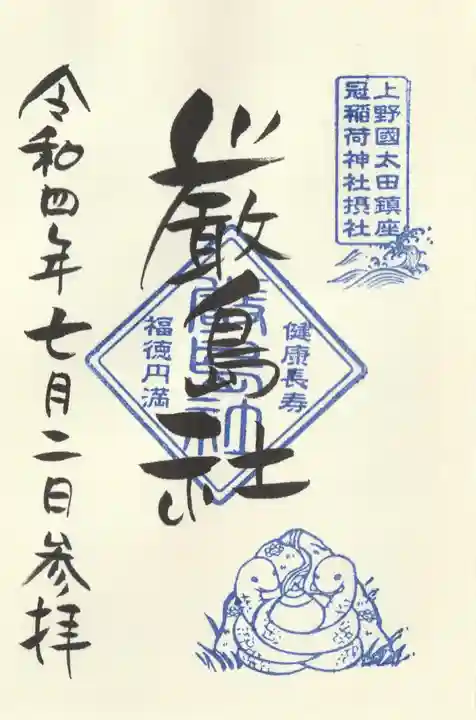 上野國太田鎮座
冠稲荷神社摂社
厳島社
健康長寿
厳島社
福徳円満
令和四年七月二日参拝